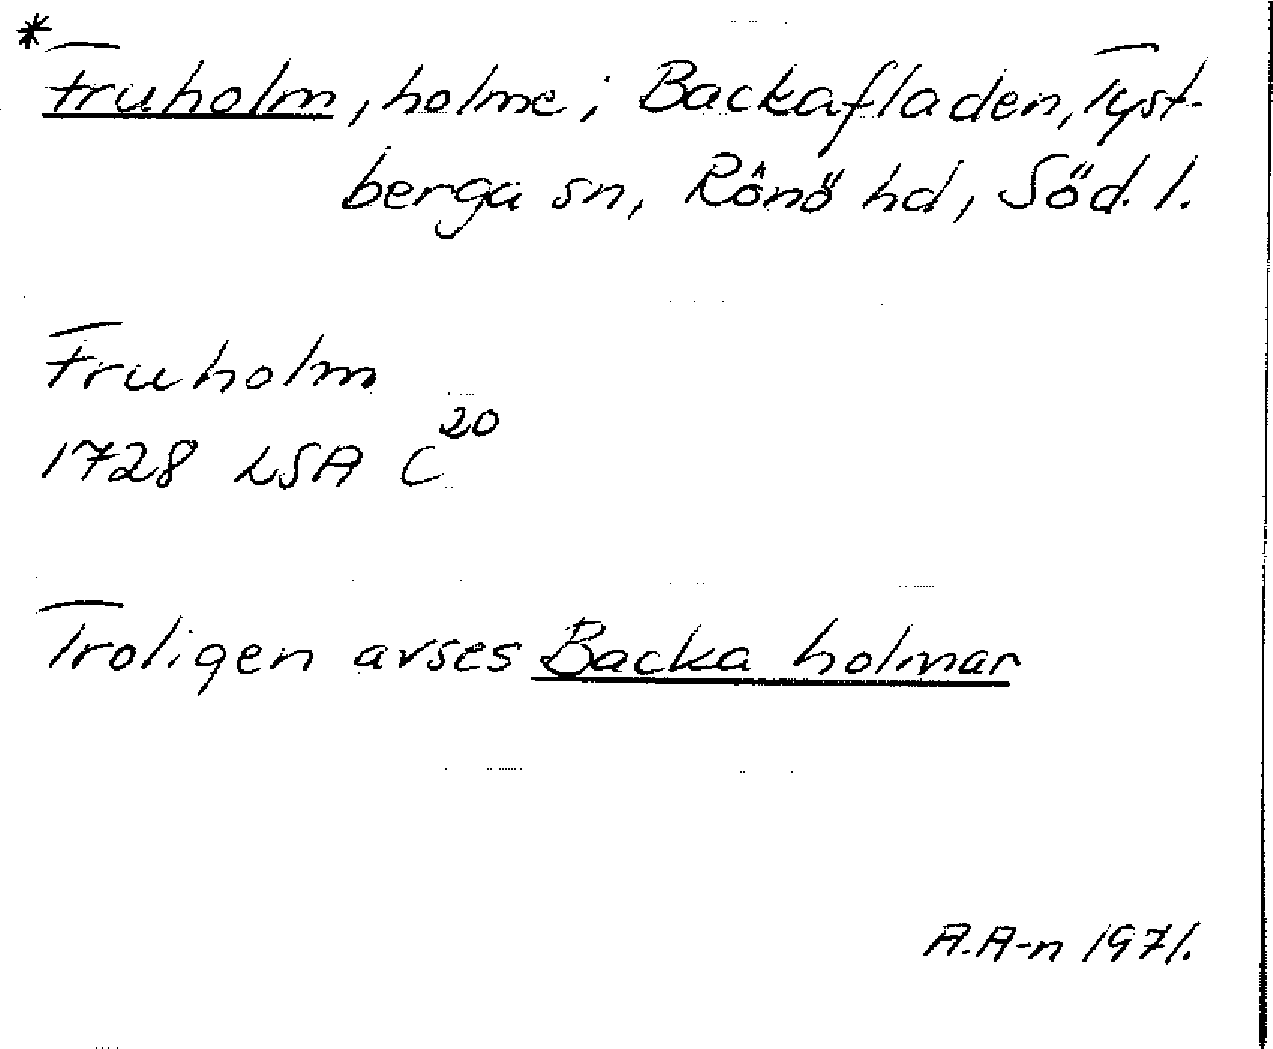 * Fruholm, holme i Backafladen, Tyst-
berga sn, Rönö hd, Söd. l.
Fruholm
1728 LSA C²⁰
Troligen avses Backa holmar
A.A-n 1971.